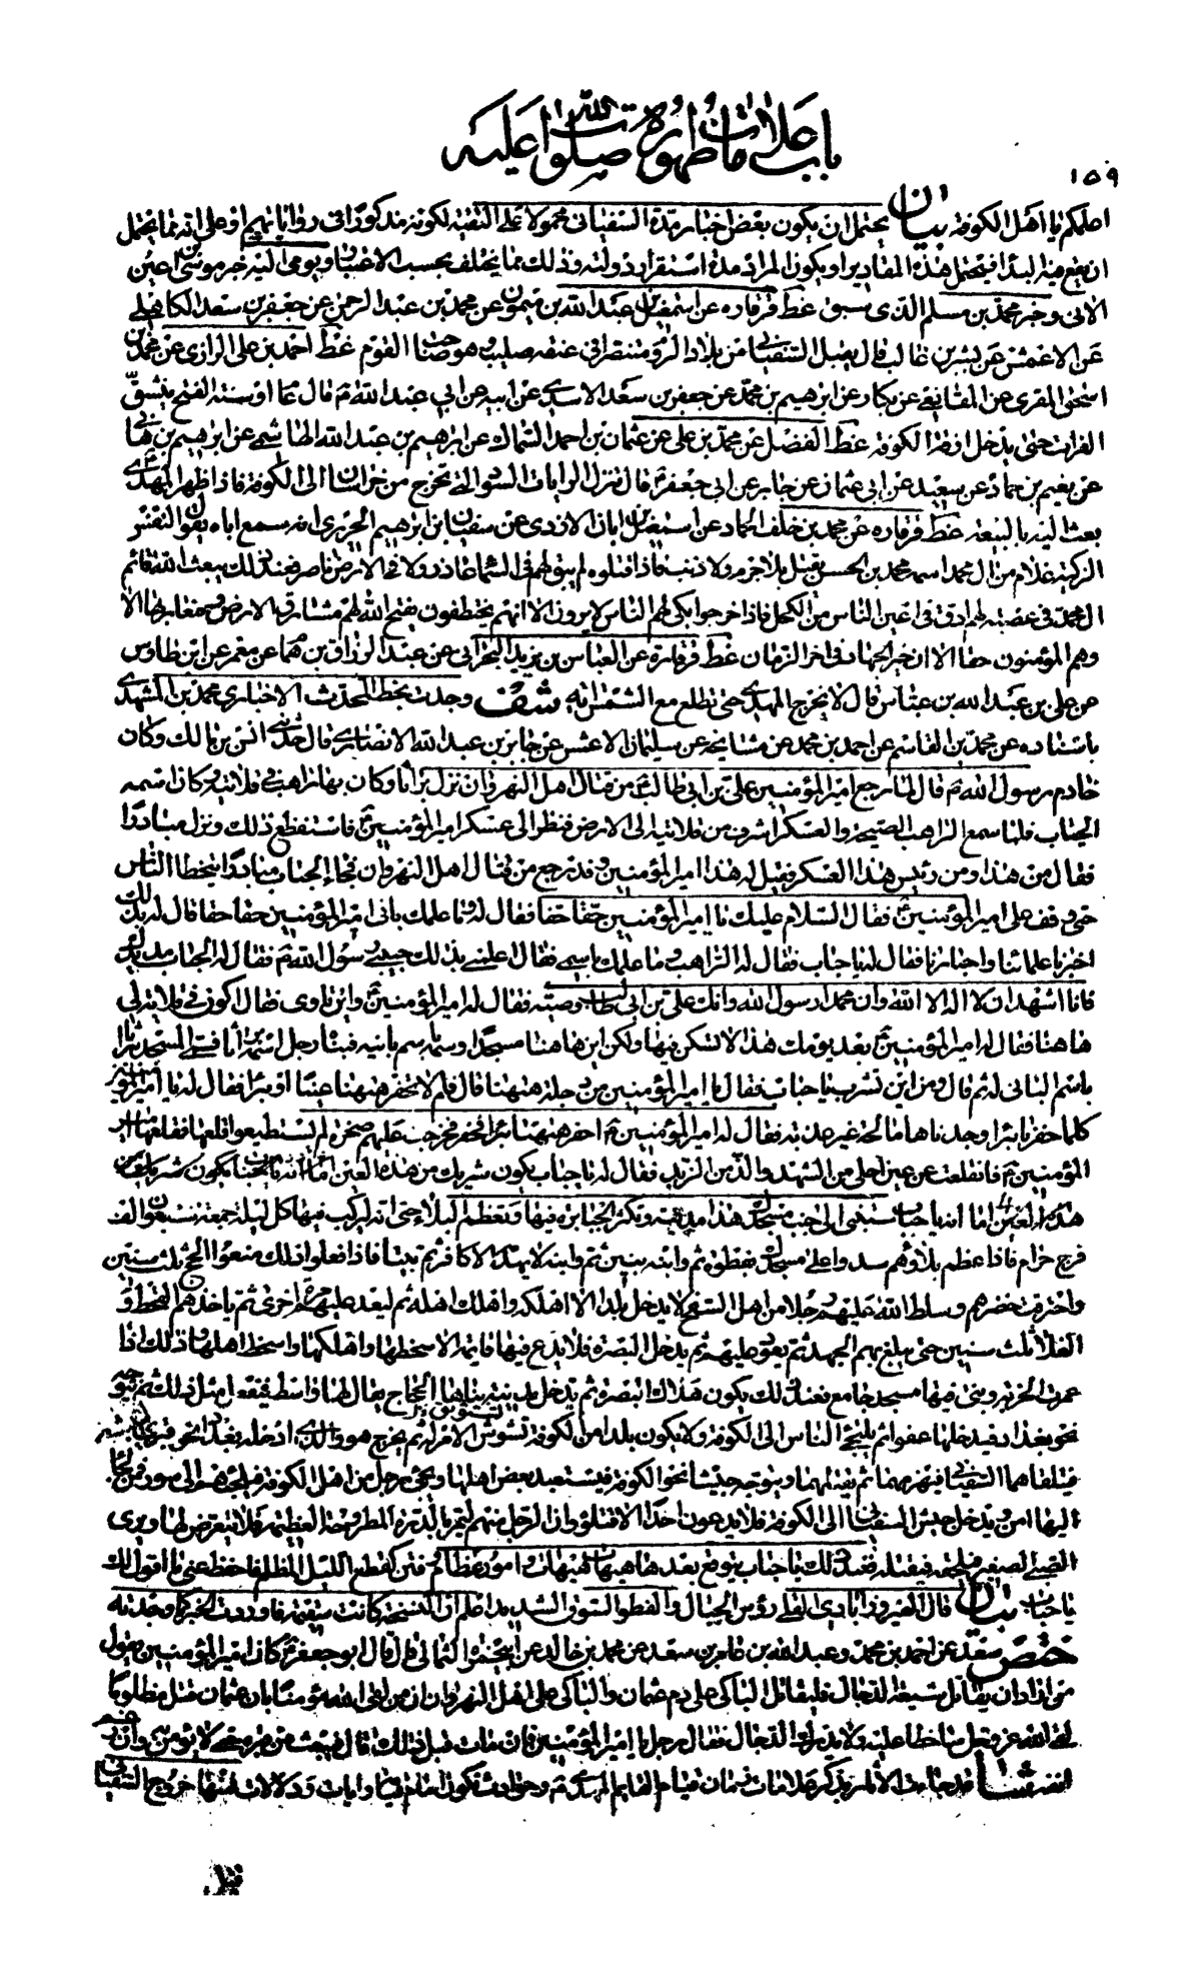 باب علامات ظهوره صلوات الله عليه
١٥٩
اهلكم يا اهل الكوفة بيان يحتمل ان يكون بعض اخبار مدة السفياني محمولا على التقية لكونه مذكورا في رواياتهم او على انه مما يحتمل
ان يقع فيه البداء فيحتمل هذه المقادير او يكون المراد مدة استقرار دولته وذلك مما يختلف بحسب الاعتبار ويومي اليه خبر موسى بن اعين
الاتي وخبر محمد بن مسلم الذي سبق غط قرقارة عن اسمعيل بن عبد الله بن ميمون عن محمد بن عبد الرحمن عن جعفر بن سعد الكاهلي
عن الاعمش عن بشر بن غالب قال يقبل السفياني من بلاد الروم متنصرا في عنقه صليب وهو صاحب القوم غط احمد بن علي الرازي عن محمد بن
اسحق المقري عن المقانعي عن بكار عن ابرهيم بن محمد عن جعفر بن سعد الاسدي عن ابيه عن ابي عبد الله م قال عام او سنة الفتح ينشق
الفرات حتى يدخل ازقة الكوفة غط الفضل عن محمد بن علي عن عثمان بن احمد السماك عن ابرهيم بن عبد الله الهاشمي عن ابرهيم بن هاني
عن نعيم بن حماد عن سعيد عن ابي عثمان عن جابر عن ابي جعفر ع قال تنزل الرايات السود التي تخرج من خراسان الى الكوفة فاذا ظهر المهدي
بعث اليه بالبيعة غط قرقارة عن محمد بن خلف الحماد عن اسمعيل بن ابان الازدي عن سفيان بن ابرهيم الجريري انه سمع اباه يقول النفس
الزكية غلام من ال محمد اسمه محمد بن الحسن يقتل بلا جرم ولا ذنب فاذا قتلوه لم يبق لهم في السماء عاذر ولا في الارض ناصر فعند ذلك يبعث الله قائم
ال محمد في عصبة لهم ادق في اعين الناس من الكحل فاذا خرجوا بكى لهم الناس لا يرون الا انهم يختطفون يفتح الله لهم مشارق الارض ومغاربها الا
وهم المؤمنون حقا الا ان خير الجهاد في اخر الزمان غط قرقارة عن العباس بن يزيد البحراني عن عبد الرزاق بن همام عن معمر عن ابن طاوس
عن علي بن عبد الله بن عباس قال لا يخرج المهدي حتى تطلع مع الشمس اية شف وجدت بخط المحدث الاخباري محمد بن المشهدي
باسناده عن محمد بن القاسم عن احمد بن محمد عن مشايخه عن سليمان الاعمش عن جابر بن عبد الله الانصاري قال حدثني انس بن مالك وكان
خادم رسول الله م قال لما رجع امير المؤمنين علي بن ابي طالب ع من قتال اهل النهروان نزل براثا وكان بها راهب في قلايته وكان اسمه
الحباب فلما سمع الراهب الصيحة والعسكر اشرف من قلايته الى الارض فنظر الى عسكر امير المؤمنين ع فاستفظع ذلك ونزل مبادرا
فقال من هذا ومن رئيس هذا العسكر فقيل له هذا امير المؤمنين وقد رجع من قتال اهل النهروان فجاء الحباب مبادرا يتخطا الناس
حتى وقف على امير المؤمنين ع فقال السلام عليك يا امير المؤمنين حقا حقا فقال له وما علمك باني امير المؤمنين حقا حقا قال له بذلك
اخبرنا علماؤنا واحبارنا فقال له يا حباب فقال له الراهب وما علمك باسمي فقال اعلمني بذلك حبيبي رسول الله م فقال له الحباب مد يدك
فانا اشهد ان لا اله الا الله وان محمدا رسول الله وانك علي بن ابي طالب وصيه فقال له امير المؤمنين ع واين تاوي فقال اكون في قلاية لي
هاهنا فقال له امير المؤمنين ع بعد يومك هذا لا تسكن فيها ولكن ابن هاهنا مسجدا وسمه باسم بانيه فبناه رجل اسمه براثا فسمي المسجد ببراثا
باسم الباني له ثم قال ومن اين تشرب يا حباب فقال يا امير المؤمنين من دجلة ههنا قال فلم لا تحفر ههنا عينا او بئرا فقال له يا امير المؤمنين
كلما حفرنا بئرا وجدناها مالحة غير عذبة فقال له امير المؤمنين ع احفر ههنا بئرا فحفر فخرجت عليهم صخرة لم يستطيعوا قلعها فقلعها امير
المؤمنين ع فانقلعت عن عين احلى من الشهد والذ من الزبد فقال له يا حباب يكون شربك من هذه العين اما انه يا حباب ستبنى الى جنب مسجدك هذا مدينة وتكثر الجبابرة فيها وتعظم البلاء حتى انه ليركب فيها كل ليلة جمعة سبعون الف
فرج حرام فاذا عظم بلاؤهم سدوا على مسجدك بفطوة ثم وابنه بنين ثم وابنه لا يهدمه الا كافر ثم بيتا فاذا فعلوا ذلك منعوا الحج ثلث سنين
واحترقت خضرهم وسلط الله عليهم رجلا من اهل السفح لا يدخل بلدا الا اهلكه واهلك اهله ثم ليعد عليهم مرة اخرى ثم ياخذهم القحط و
الغلا ثلث سنين حتى يبلغ بهم الجهد ثم يعود عليهم ثم يدخل البصرة فلا يدع فيها قائمة الا سخطها واهلكها واسخط اهلها وذلك اذا
عمرت الخربة وبنى فيها مسجد جامع فعند ذلك يكون هلاك البصرة ثم يدخل مدينة بناها الحجاج يقال لها واسط فيفعل مثل ذلك ثم يتوجه
نحو بغداد فيدخلها عفوا ثم يلتجئ الناس الى الكوفة ولا يكون بلد من الكوفة تشوش الامر له ثم يخرج هو والذي ادخله بغداد نحو قبري لينبشه
فيلقاهما السفياني فيهزمهما ثم يقتلهما ويتوجه جيشا نحو الكوفة فيستعبد بعض اهلها ويجيء رجل من اهل الكوفة فيلجئهم الى سور فمن لجا
اليها امن ويدخل جيش السفياني الى الكوفة فلا يدعون احدا الا قتلوه وان الرجل منهم ليمر بالدرة المطروحة العظيمة فلا يتعرض لها ويرى
الصبي الصغير فيلحقه فيقتله فعند ذلك يا حباب يتوقع بعدها هيهات هيهات وامور عظام وفتن كقطع الليل المظلم فاحفظ عني ما اقول لك
يا حباب بيان قال الفيروزابادي القلي رؤس الجبال والفطو السوق الشديد اعلم ان النسخة كانت سقيمة فاوردت الخبر كما وجدته
ختص سعد عن احمد بن محمد وعبد الله بن عامر بن سعد عن محمد بن خالد عن ابي حمزة الثمالي قال قال ابو جعفر ع كان امير المؤمنين يقول
من اراد ان يقاتل شيعة الدجال فليقاتل الباكي على دم عثمان والباكي على اهل النهروان ان من لقي الله مؤمنا بان عثمان قتل مظلوما
لقي الله عز وجل ساخطا عليه ولا يدرك الدجال فقال رجل يا امير المؤمنين فان مات قبل ذلك قال فيبعث من قبره حتى لا يؤمن به وان رغم
انفه شا قد جاءت الاثار بذكر علامات لزمان قيام القايم المهدي ع وحوادث تكون امام قيامه وايات ودلالات فمنها خروج السفياني